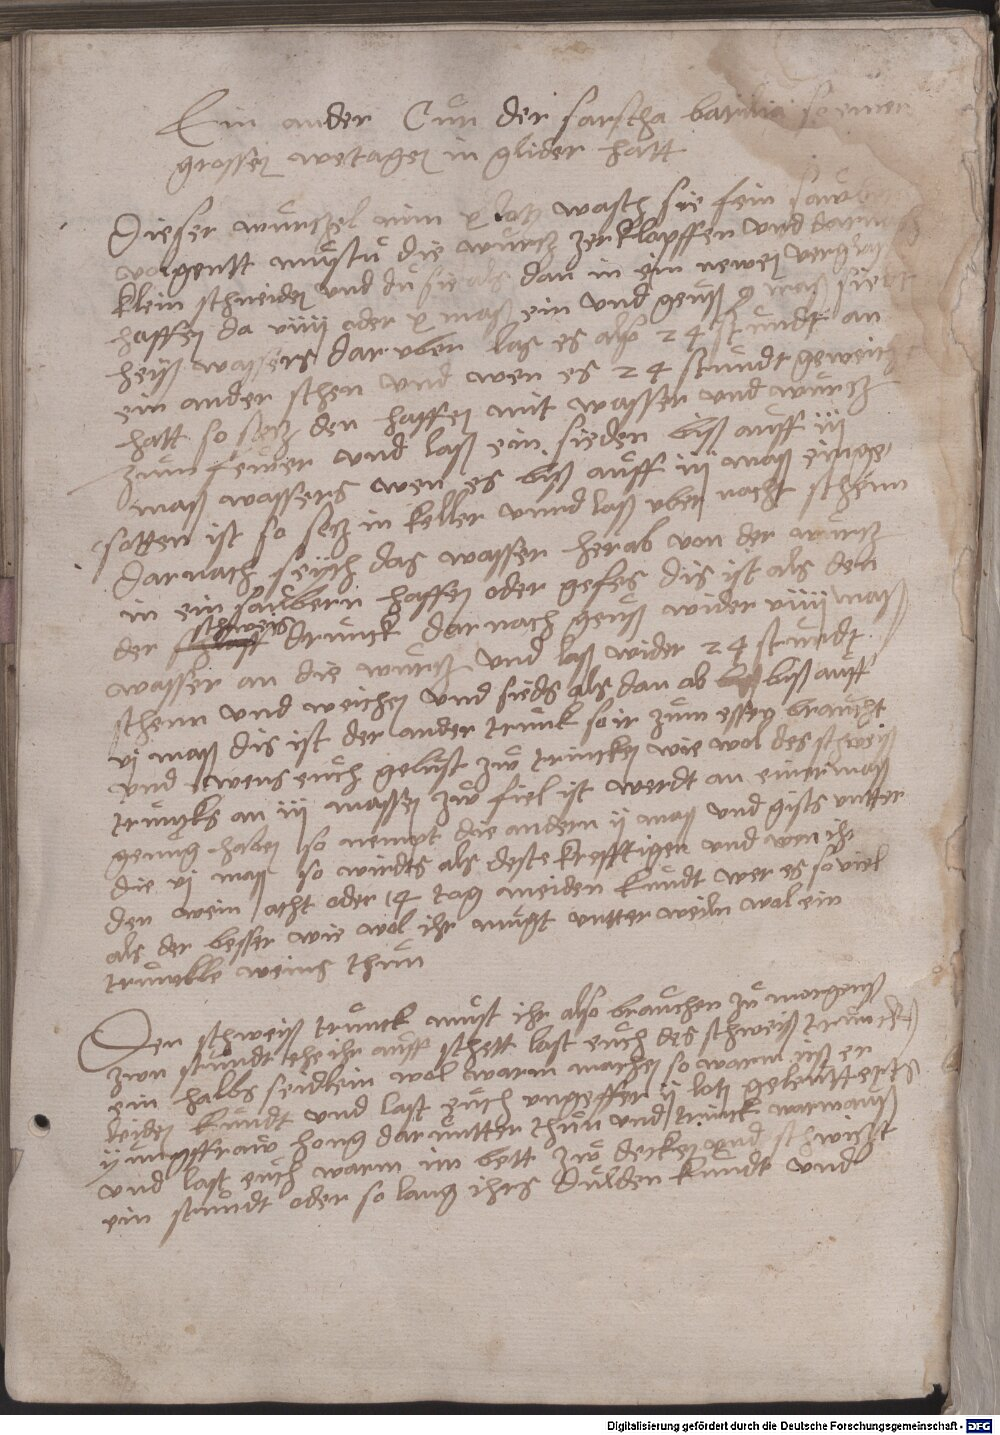 Ein ander Cur der sarscha barilia so einer
grossen wetagen in glider hatt
Dieser wurtzel nim x lotz wasch sie fein sauber
vorgentt mustu die wurtz zerklopffen und darnach
klein schneiden und du sie als dan in ein newen verglast
haffen da viiij oder x mass ein und geuss 9 mass siedt
heiss wassers dar uber las es also 24 stundt an
ein ander sthen und wen es 24 stundt geweicht
hatt so setz den haffen mit wasser und wurtz
zum fewer und lass ein sieden biss auff iij
mass wassers wen es biss auff iij mass einge
sotten ist so setz in keller unnd lass uber nacht sthenn
Darnach seych das wasser herab von der wurtz
in ein saubern haffen oder gefes dis ist als den
der schweis drunck darnach geuss wider viiij mass
wasser an die wurtz und lass wider 24 stundt
sthenn und weichen und sieds als dan ab biss auff
vj mass dis ist der ander trunk so ir zum essen braucht
und wens euch gelust zu trincken wie wol des schweiss
truncks an iij massen zu fiel ist werdt an einer mass
genug haben so nempt die andern ij mass und gists untter
die vj mass so wirdts als deste krefftiger und wen ihr
den wein acht oder 14 tag meiden kundt wer es so viel
als der besser wie wol ihr mugt untter weiln wol ein
trunckle weins thun
Den schweiss trunck must ihr also brauchen zu morgenss
zwu stundt ehe ihr auff sthett last euch des schweiss truncks
ein halbs seidlein wol warm machen so warm irss er
leiden kundt und last euch ungeffer ij lott geleutterts
junckffraw hong daruntter thun und trinck warm auss
und last euch warm im bett zu decken und schwitzt
ein stundt oder so lang ihrs dulden kundt und
Digitalisierung gefördert durch die Deutsche Forschungsgemeinschaft - DFG